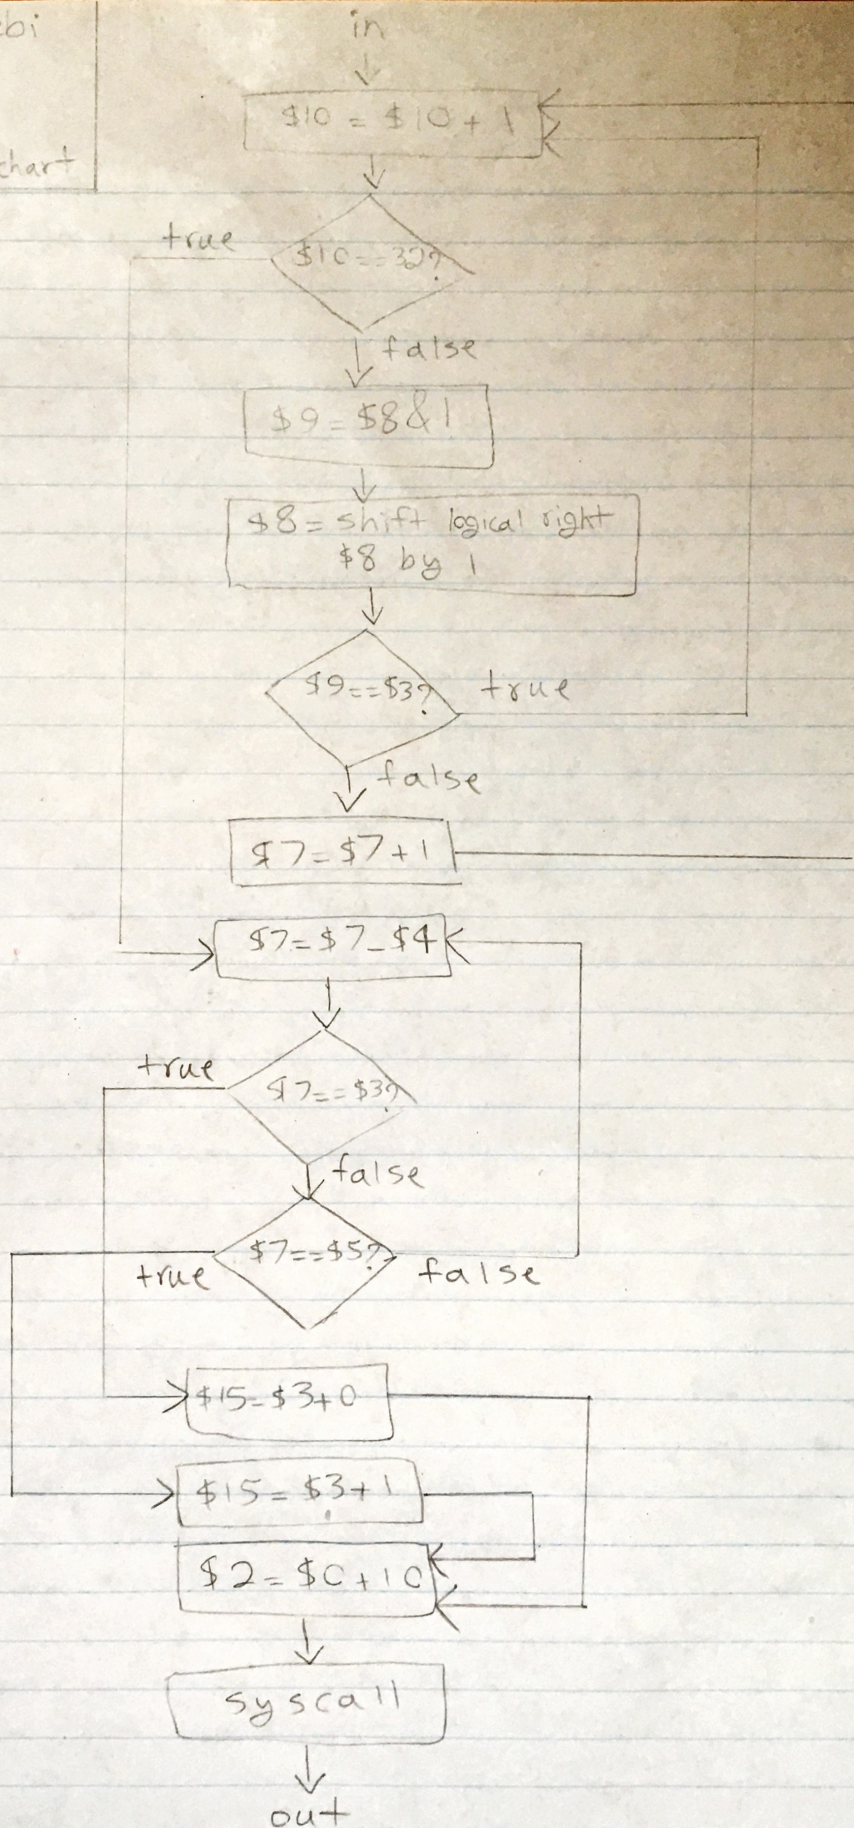 ebi
chart
in
$10 = $10 + 1
true
$10==32?
false
$9=$8&1
$8= shift logical right
$8 by 1
$9==$3?
true
false
$7=$7+1
$7=$7-$4
true
$7==$3?
false
$7==$5?
true
false
$15=$3+0
$15=$3+1
$2=$0+10
syscall
out